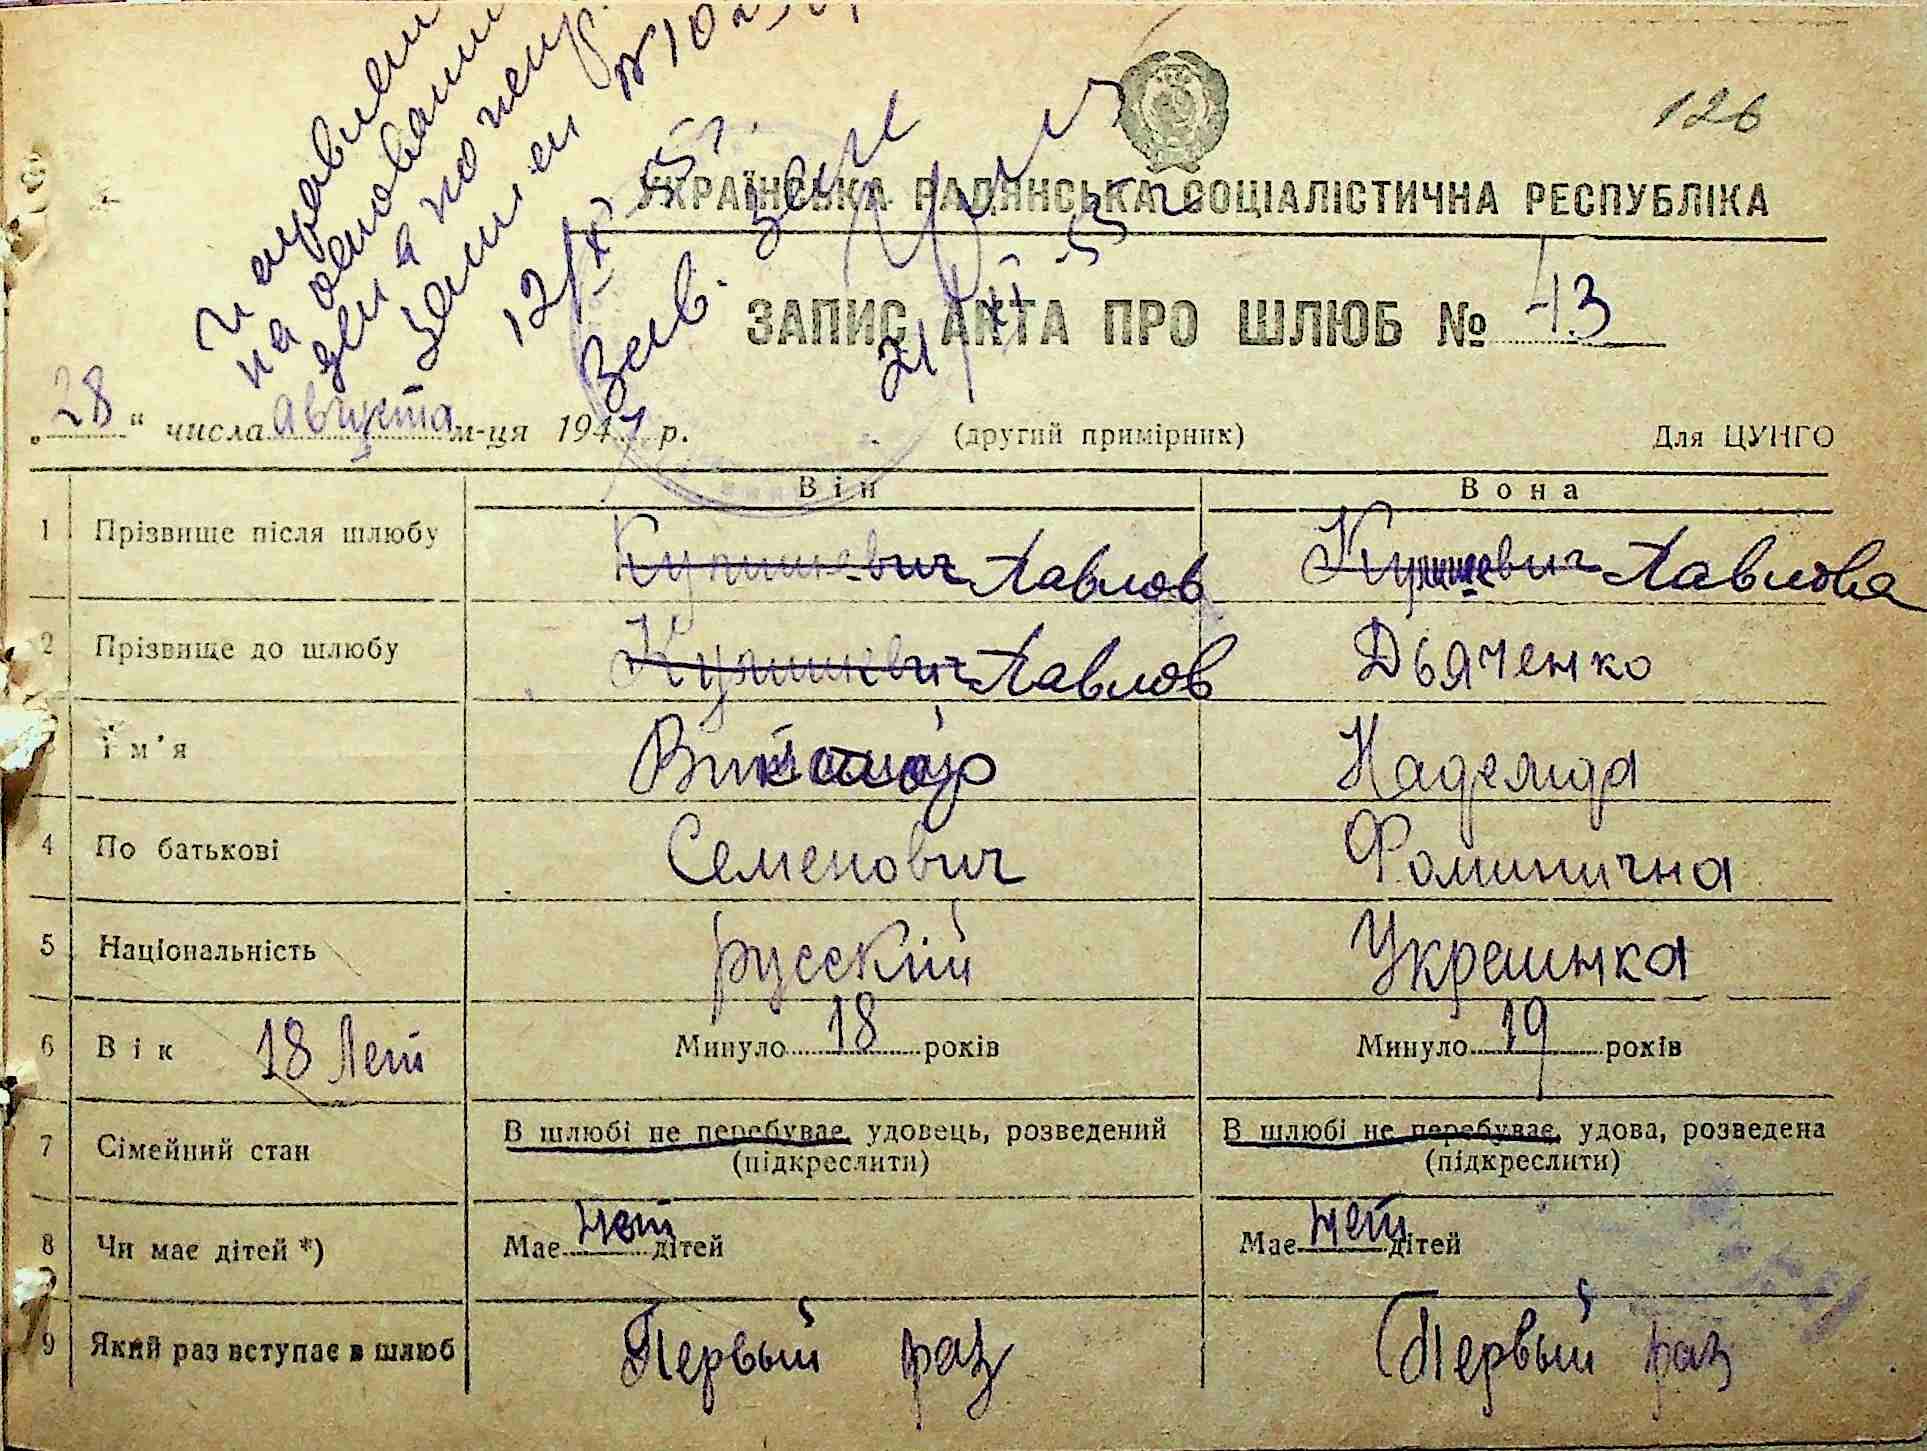 126
Исправлени
на основании
дела по непр.
Запис
12/XI-55 г.
Зав. Загс
21/XI-55 г
УКРАЇНСЬКА РАДЯНСЬКА СОЦІАЛІСТИЧНА РЕСПУБЛІКА
ЗАПИС АКТА ПРО ШЛЮБ № 43
„28“ числа августа м-ця 1947 р. (другий примірник) Для ЦУНГО
Він Вона
1 Прізвище після шлюбу Павлов Павлова
2 Прізвище до шлюбу Павлов Дьяченко
3 Ім'я Виктор Надежда
4 По батькові Семенович Фоминична
5 Національність русскій Украинка
6 Вік 18 Лет Минуло 18 років Минуло 19 років
7 Сімейний стан В шлюбі не перебуває, удовець, розведений В шлюбі не перебуває, удова, розведена
(підкреслити) (підкреслити)
8 Чи має дітей *) Має нет дітей Має нет дітей
9 Який раз вступає в шлюб Первый раз Первый раз